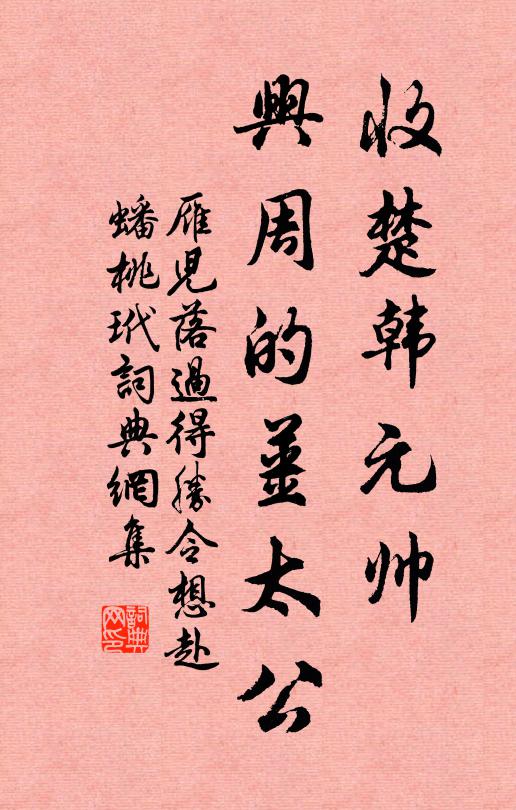 收楚韩元帅
興周的姜太公
雁児落過得勝令想赴
蟠桃玳詞典網集
詞典
网印